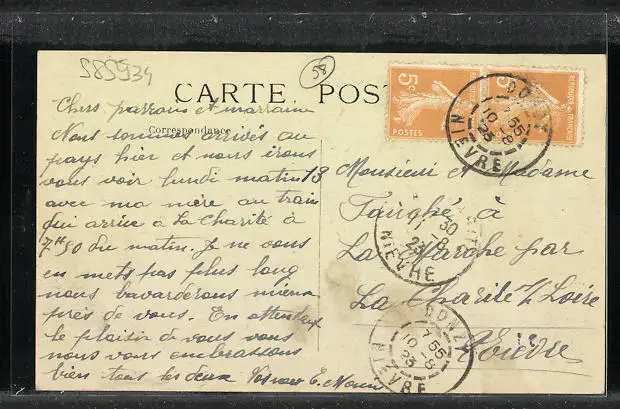 585934
58
CARTE POS
Correspondance
Chers parrain et marraine
Nous sommes arrivés au
pays hier et nous irons
vous voir lundi matin 13
avec ma mère au train
qui arrive a La Charité à
7H50 du matin. Je ne vous
en mets pas plus long
nous bavarderons mieux
près de vous. En attendant
le plaisir de vous voir
nous vous embrassons
bien tous les deux
5c
POSTES
5c
REPUBLIQUE FRANÇAISE
DONZY
7 55
10 -8
23
NIEVRE
Monsieur et Madame
à
La Marche par
La Charité s/ Loire
Nièvre
30
11 -8
23
NIEVRE
DONZY
7 55
10 -8
23
NIEVRE